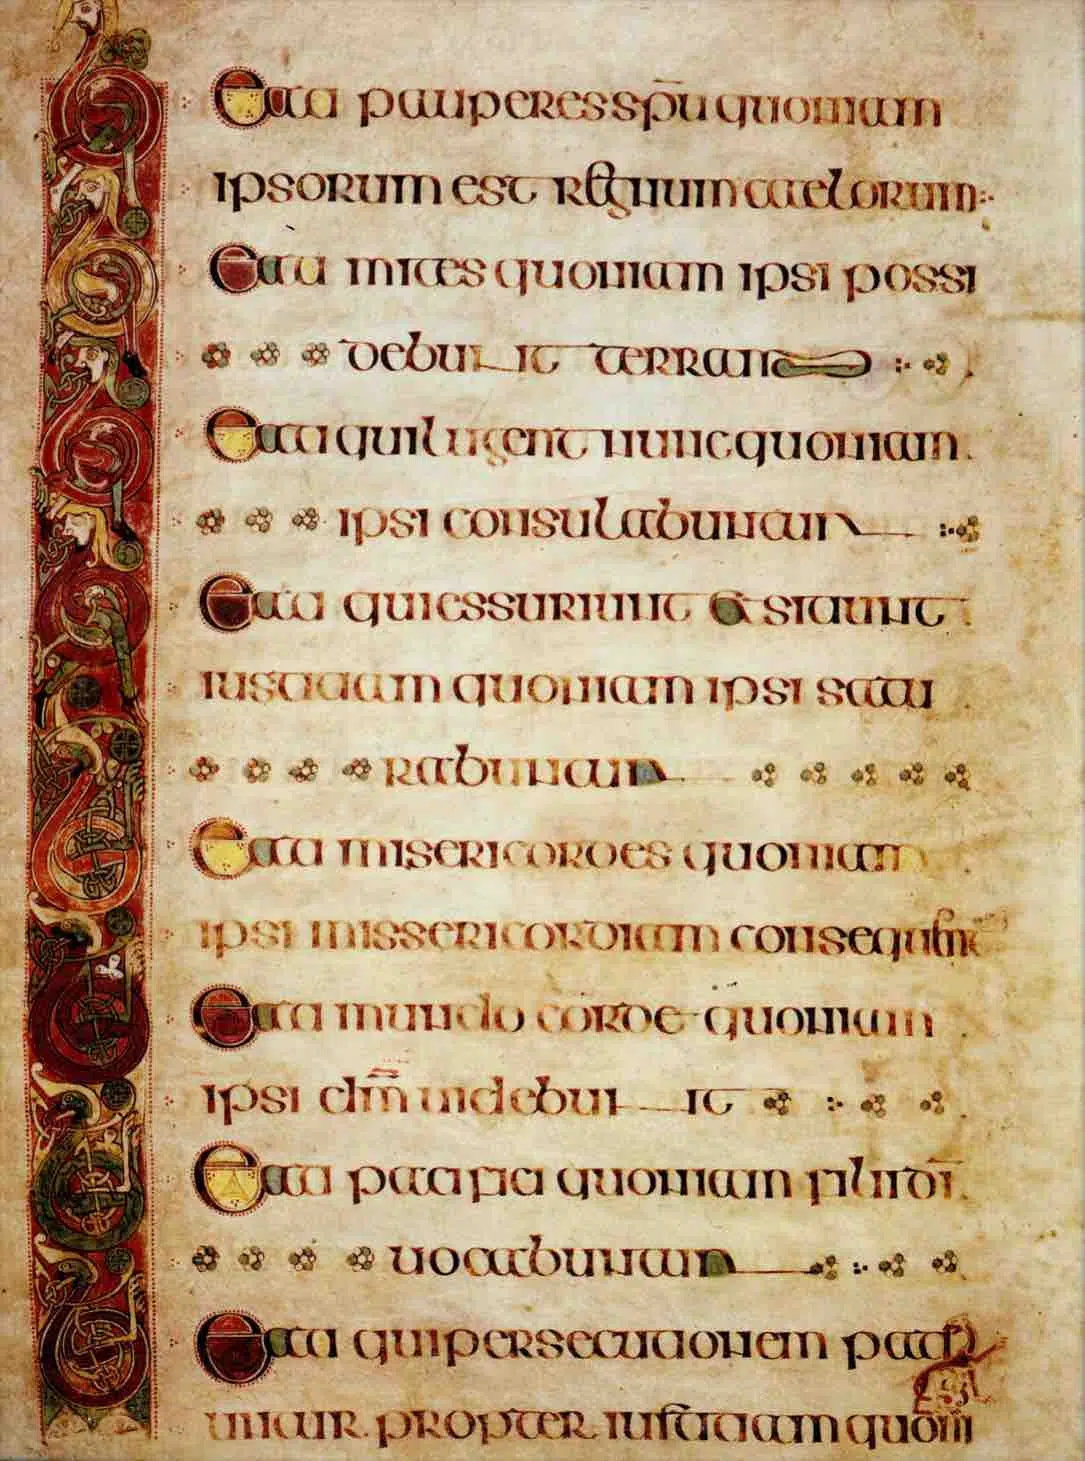 Beati pauperes spū quoniam
ipsorum est regnum caelorum
Beati mites quoniam ipsi possi
debunt terram
Beati qui lugent nunc quoniam
ipsi consulabuntur
Beati qui essuriunt et sitiunt
iustitiam quoniam ipsi satu
rabuntur
Beati misericordes quoniam
ipsi missericordiam consequentur
Beati mundo corde quoniam
ipsi dm̄ uidebunt
Beati pacifici quoniam filii dī
uocabuntur
Beati qui persecutionem pati
untur propter iustitiam quom̄